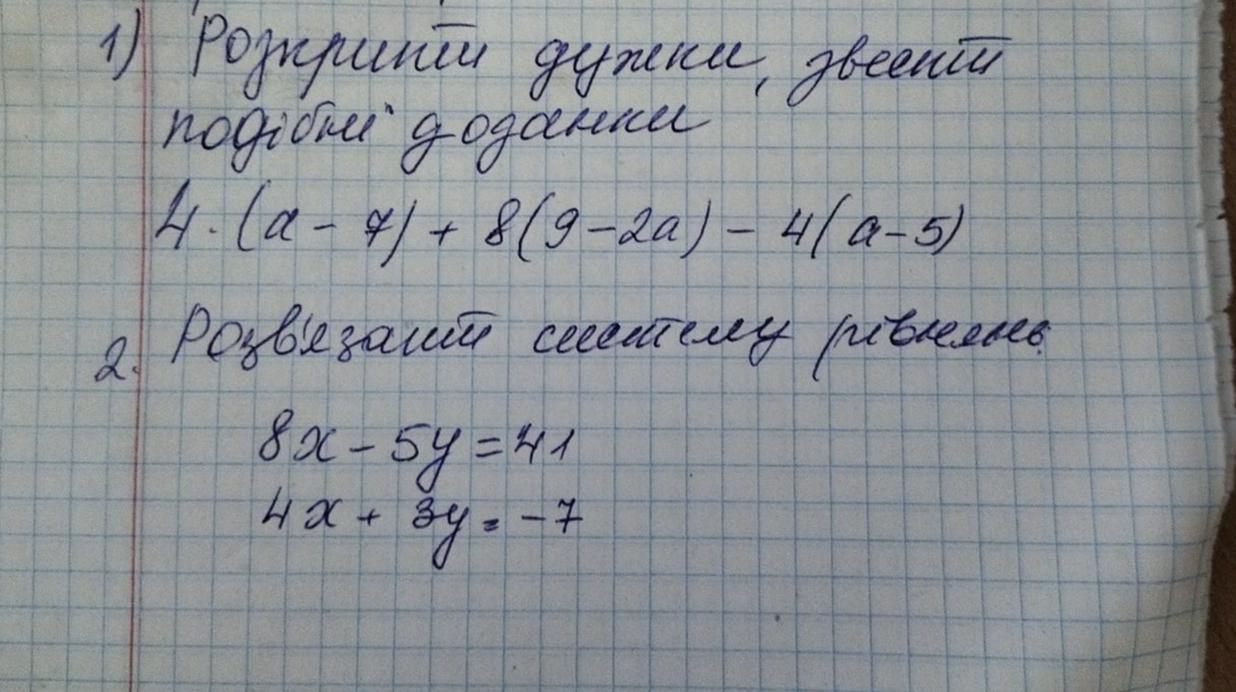 1) Розкрити дужки, звести
подібні доданки
4·(a-7)+8(9-2a)-4(a-5)
2. Розв'язати систему рівнянь.
8x-5y=41
4x+3y=-7